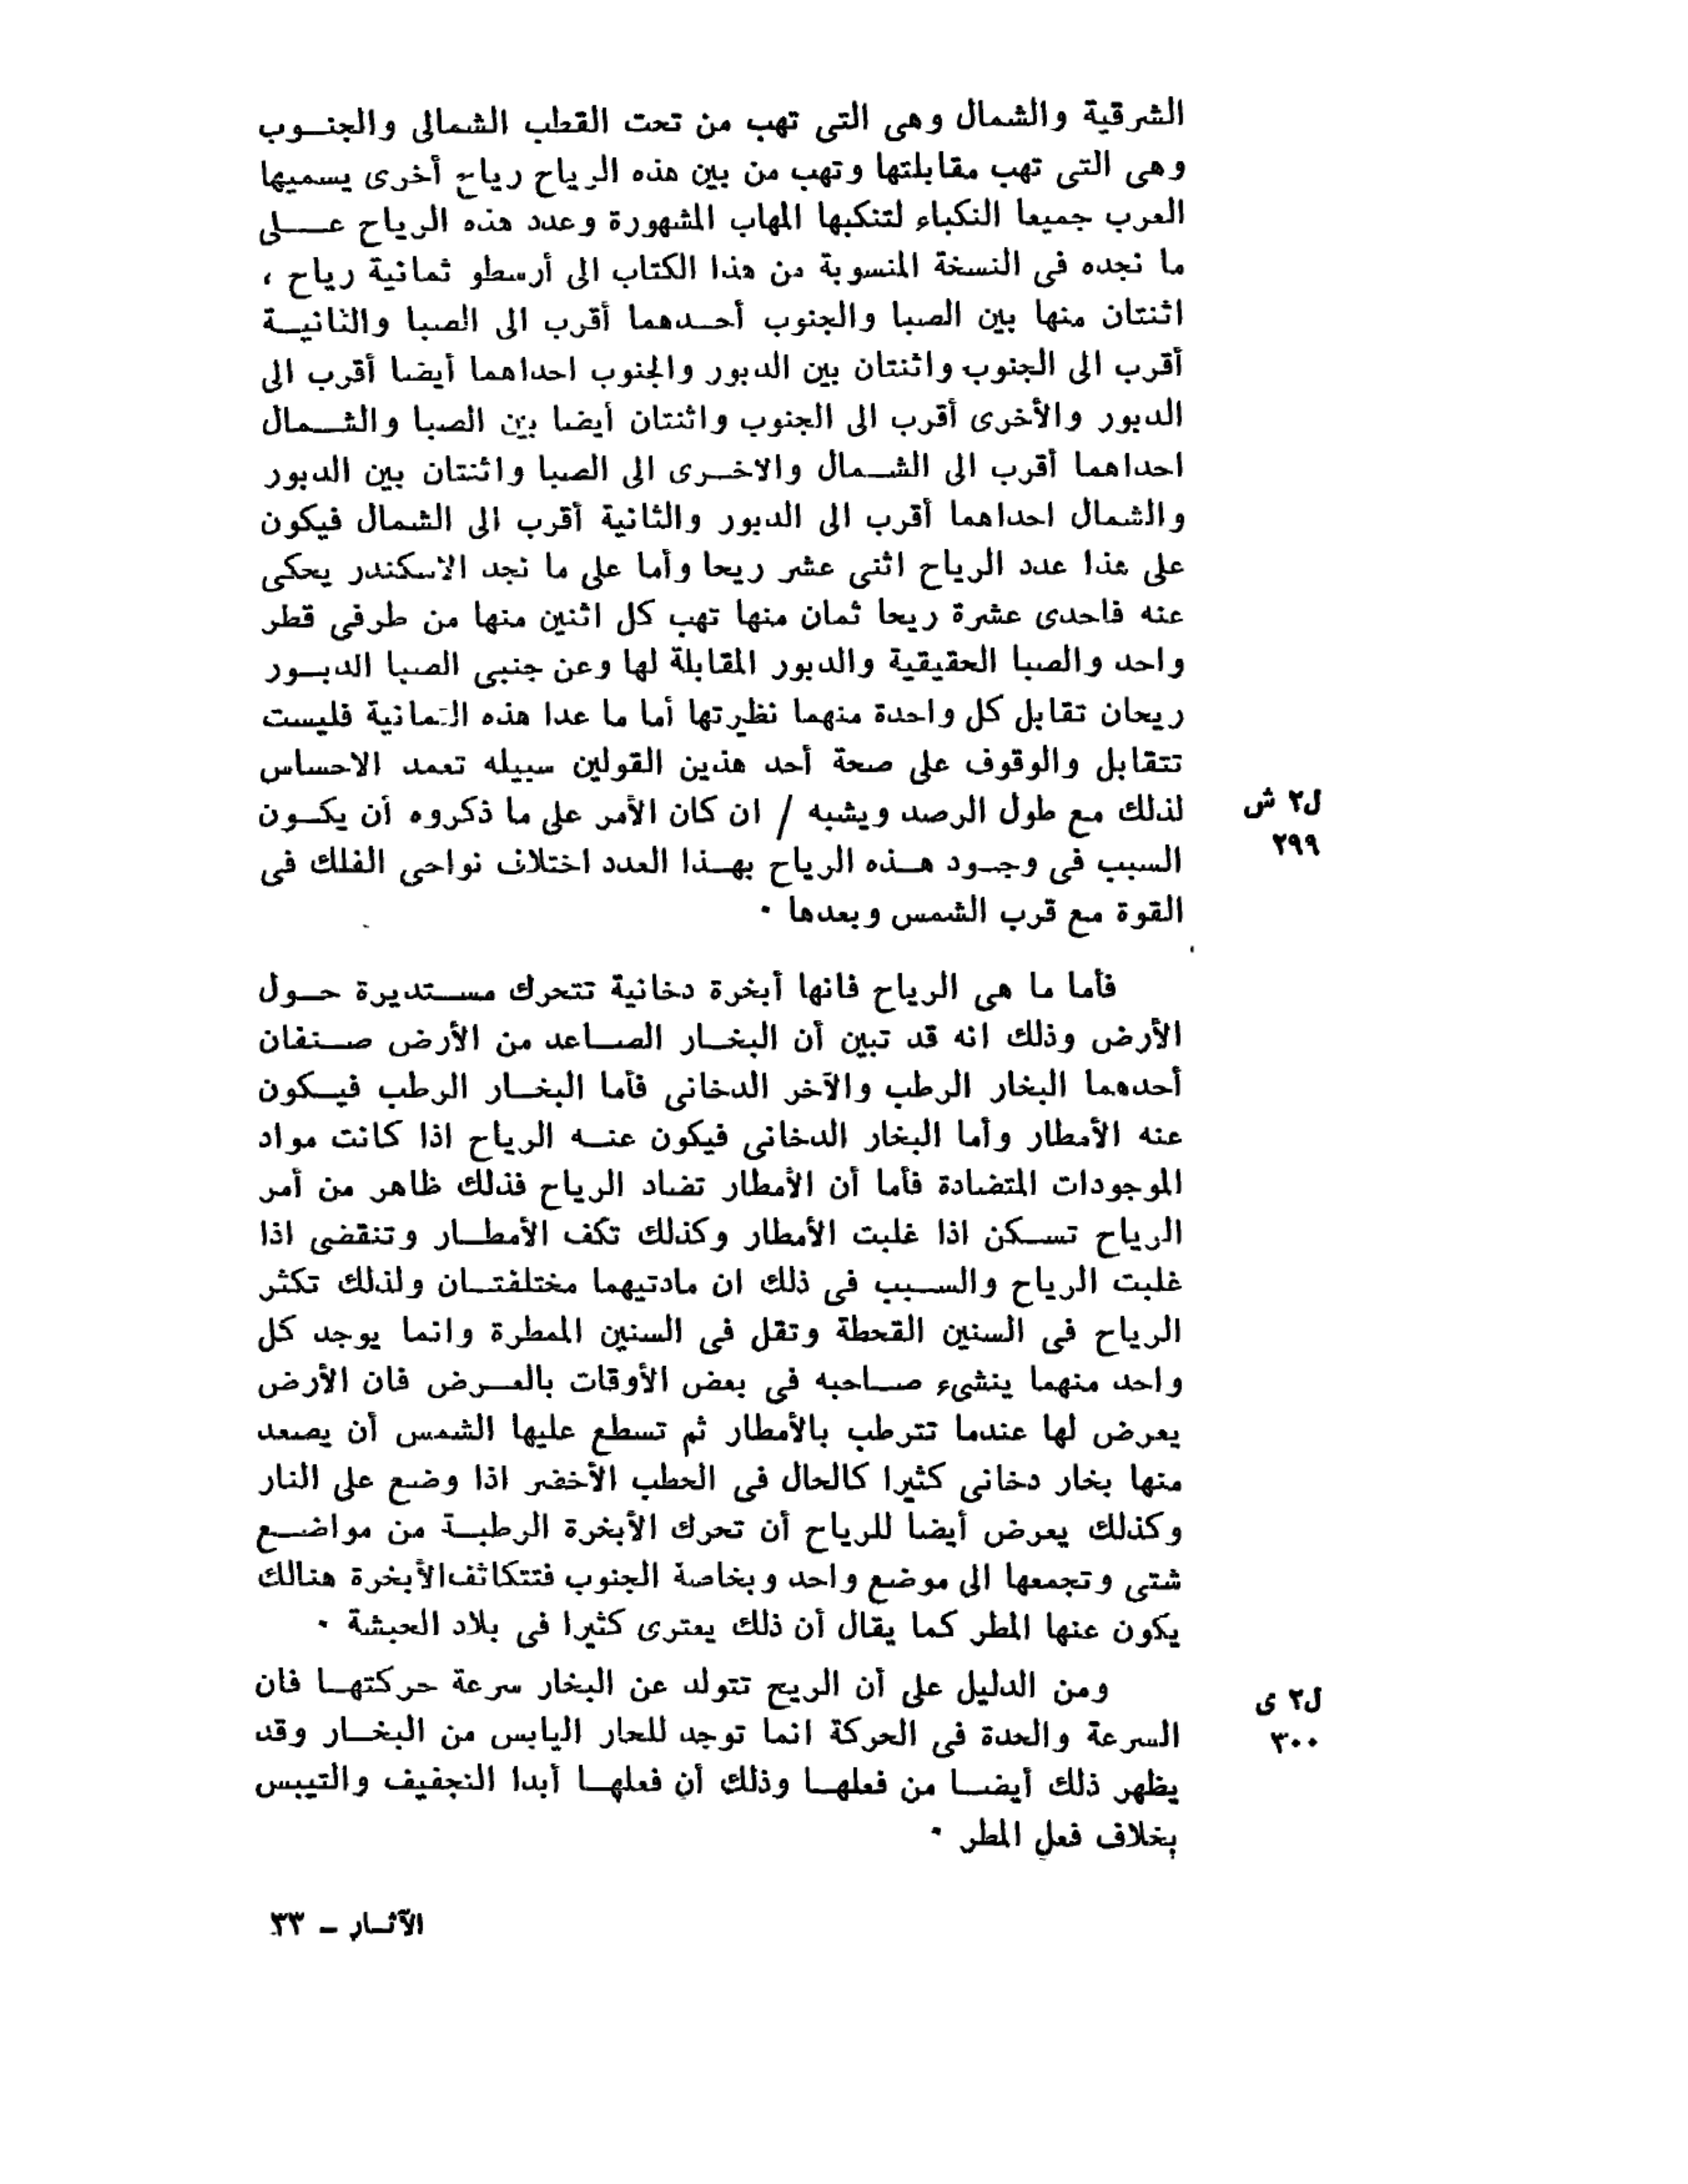 الشرقية والشمال وهى التى تهب من تحت القطب الشمالى والجنوب
وهى التى تهب مقابلتها وتهب من بين هذه الرياح رياح أخرى يسميها
العرب جميعا النكباء لتنكبها المهاب المشهورة وعدد هذه الرياح على
ما نجده فى النسخة المنسوبة من هذا الكتاب الى أرسطو ثمانية رياح ،
اثنتان منها بين الصبا والجنوب أحدهما أقرب الى الصبا والثانية
أقرب الى الجنوب واثنتان بين الدبور والجنوب احداهما أيضا أقرب الى
الدبور والأخرى أقرب الى الجنوب واثنتان أيضا بين الصبا والشمال
احداهما أقرب الى الشمال والاخرى الى الصبا واثنتان بين الدبور
والشمال احداهما أقرب الى الدبور والثانية أقرب الى الشمال فيكون
على هذا عدد الرياح اثنى عشر ريحا وأما على ما نجد الاسكندر يحكى
عنه فاحدى عشرة ريحا ثمان منها تهب كل اثنين منها من طرفى قطر
واحد والصبا الحقيقية والدبور المقابلة لها وعن جنبى الصبا الدبور
ريحان تقابل كل واحدة منهما نظيرتها أما ما عدا هذه الثمانية فليست
تتقابل والوقوف على صحة أحد هذين القولين سبيله تعمد الاحساس
لذلك مع طول الرصد ويشبه / ان كان الأمر على ما ذكروه أن يكون
ل٢ ش
٢٩٩
السبب فى وجود هذه الرياح بهذا العدد اختلاف نواحى الفلك فى
القوة مع قرب الشمس وبعدها ٠
فأما ما هى الرياح فانها أبخرة دخانية تتحرك مستديرة حول
الأرض وذلك انه قد تبين أن البخار الصاعد من الأرض صنفان
أحدهما البخار الرطب والآخر الدخانى فأما البخار الرطب فيكون
عنه الأمطار وأما البخار الدخانى فيكون عنه الرياح اذا كانت مواد
الموجودات المتضادة فأما أن الأمطار تضاد الرياح فذلك ظاهر من أمر
الرياح تسكن اذا غلبت الأمطار وكذلك تكف الأمطار وتنقضى اذا
غلبت الرياح والسبب فى ذلك ان مادتيهما مختلفتان ولذلك تكثر
الرياح فى السنين القحطة وتقل فى السنين الممطرة وانما يوجد كل
واحد منهما ينشىء صاحبه فى بعض الأوقات بالعرض فان الأرض
يعرض لها عندما تترطب بالأمطار ثم تسطع عليها الشمس أن يصعد
منها بخار دخانى كثيرا كالحال فى الحطب الأخضر اذا وضع على النار
وكذلك يعرض أيضا للرياح أن تحرك الأبخرة الرطبة من مواضع
شتى وتجمعها الى موضع واحد وبخاصة الجنوب فتتكاثف الأبخرة هنالك
يكون عنها المطر كما يقال أن ذلك يعترى كثيرا فى بلاد الحبشة ٠
ومن الدليل على أن الريح تتولد عن البخار سرعة حركتها فان
ل٢ ى
٣٠٠
السرعة والحدة فى الحركة انما توجد للحار اليابس من البخار وقد
يظهر ذلك أيضا من فعلها وذلك أن فعلها أبدا التجفيف والتيبس
بخلاف فعل المطر ٠
الآثار – ٣٣